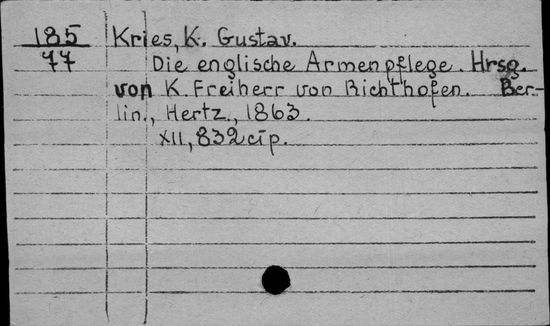 185
77
Kries, K. Gustav.
Die englische Armenpflege. Hrsg.
von K. Freiherr von Richthofen. Ber-
lin., Hertz., 1863.
XII, 832 стр.